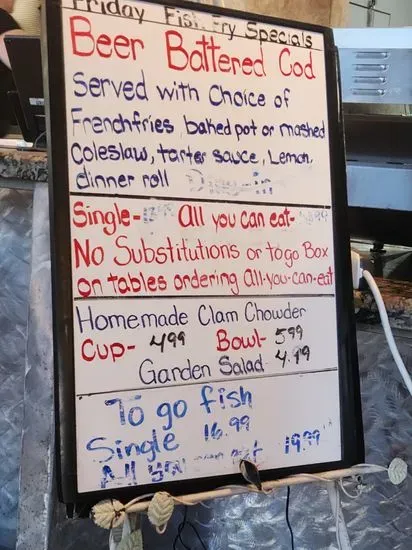 Friday Fish Fry Specials
Beer Battered Cod
Served with Choice of
Frenchfries, baked pot or mashed
Coleslaw, tarter sauce, Lemon,
dinner roll
Single- All you can eat-
No Substitutions or togo Box
on tables ordering All-you-can-eat
Homemade Clam Chowder
Cup- 499 Bowl- 599
Garden Salad 4.49
To go fish
Single 16.99
All you can eat 19.99